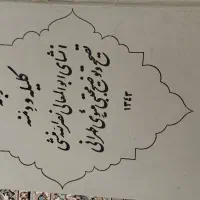 کلیله و دمنه
انشای ابوالمعالی نصرالله منشی
تصحیح و توضیح مجتبی مینوی طهرانی
۱۳۴۳